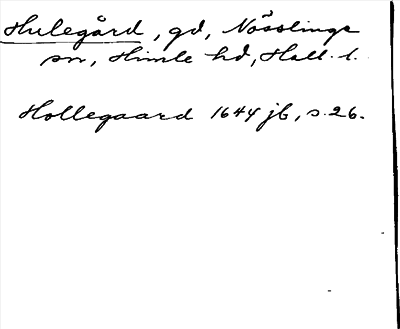 Hulegård, gd, Nösslinge
sn, Himle hd, Hall. l.
Hollegaard 1644 jb, s. 26.